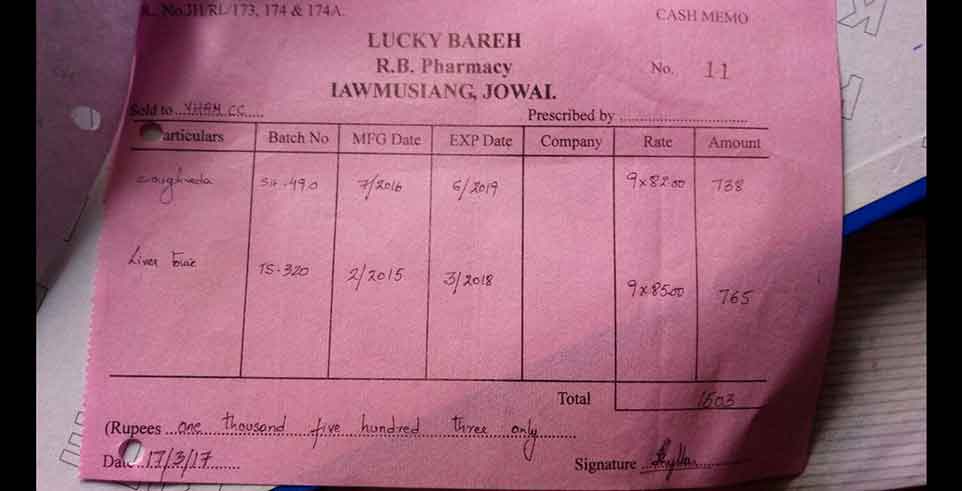 L. No.JH/RL/173, 174 & 174A.
CASH MEMO
LUCKY BAREH
R.B. Pharmacy
No. 11
IAWMUSIANG, JOWAI.
Sold to VHAM CC
Prescribed by
Particulars Batch No MFG Date EXP Date Company Rate Amount
Coughveda SH-490 7/2016 6/2019 9x82.00 738
Liver Tonic TS-320 2/2015 3/2018 9x85.00 765
Total 1503
(Rupees one thousand five hundred three only
Date 17/3/17
Signature